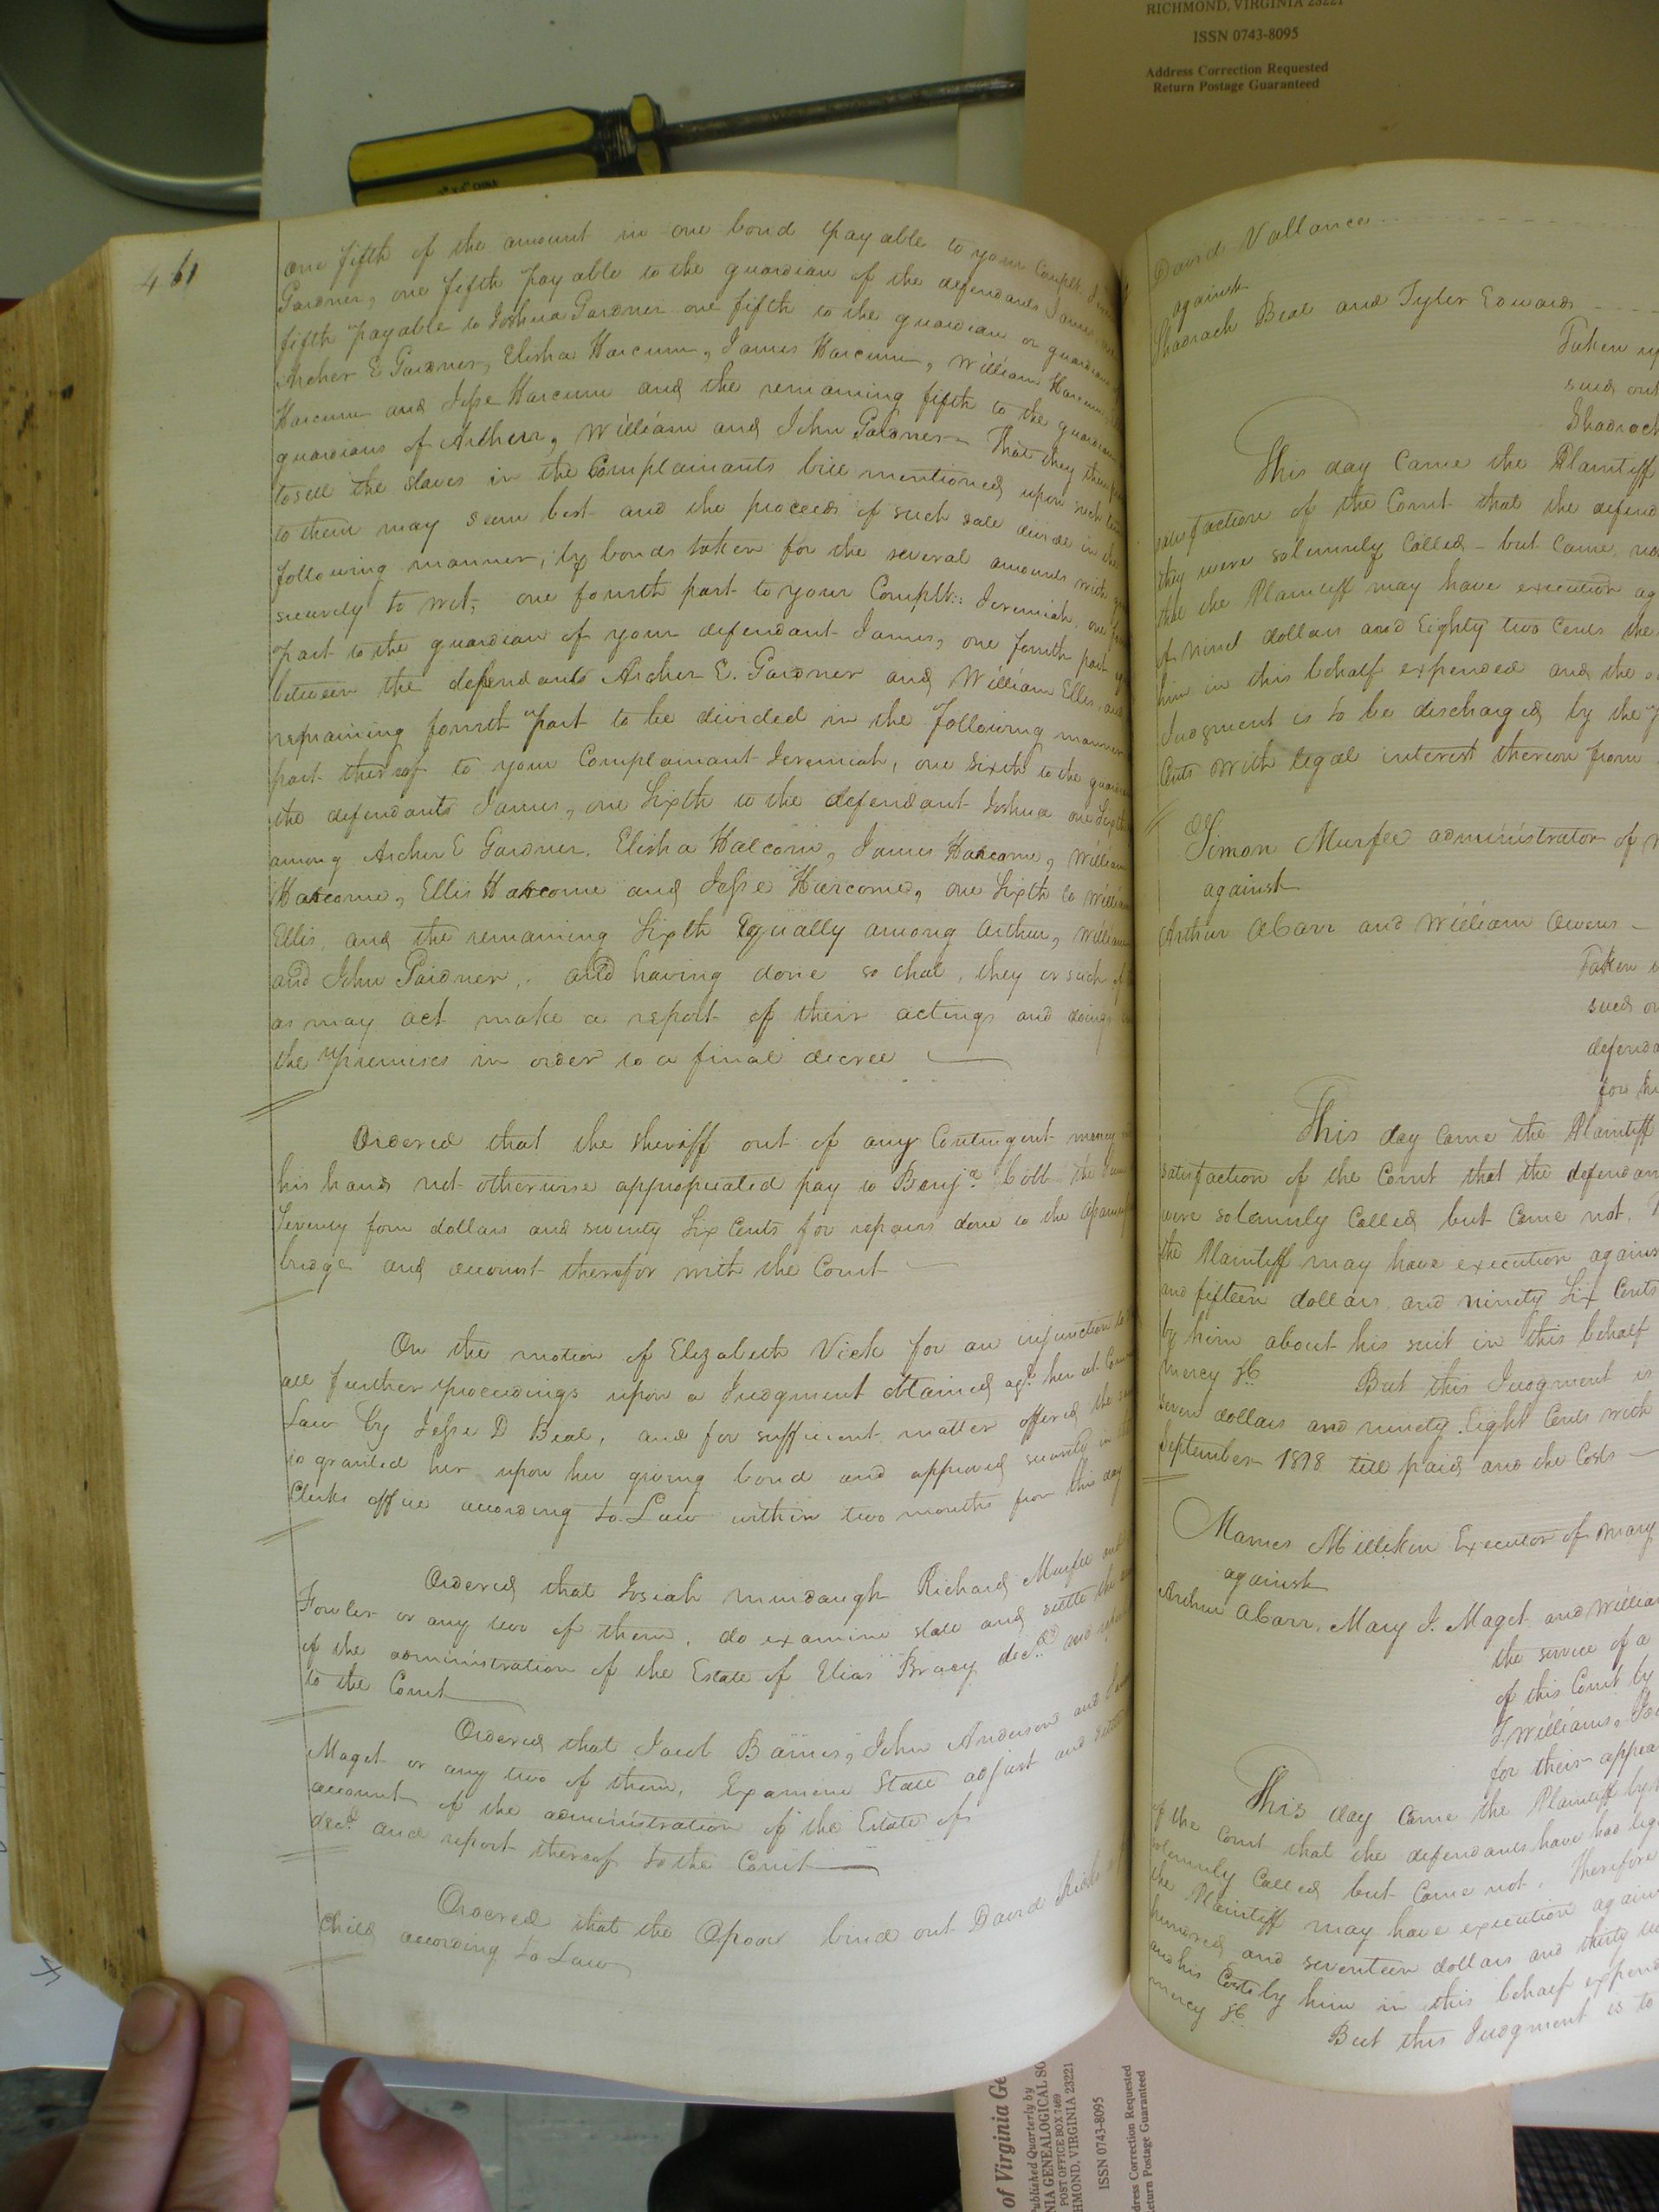 RICHMOND, VIRGINIA 23221
ISSN 0743-8095
Address Correction Requested
Return Postage Guaranteed
461
one fifth of the amount in one bond payable to your Complt
Gardner, one fifth payable to the guardian of the defendants James
fifth payable to Joshua Gardner one fifth to the guardian or guardians
Archer E Gardner, Elisha Harcum, James Harcum, William Harcum
Harcum and Jesse Harcum and the remaining fifth to the guardian
guardians of Arthur, William and John Gardner. That they then
to sell the slaves in the Complainants bill mentioned upon such
to them may seem best and the proceeds of such sale divide in the
following manner, by bonds taken for the several amounts with
security to wit, one fourth part to your Complt: Jeremiah, one
part to the guardian of your defendant James, one fourth part
between the defendants Archer E. Gardner and William Ellis, and
remaining fourth part to be divided in the following manner
part thereof to your Complainant Jeremiah, one sixth to the guardian
the defendants James, one sixth to the defendant Joshua one Sixth
among Archer E Gardner, Elisha Halcom, James Harcome, William
Harcome, Ellis Harcome and Jesse Harcome, one Sixth to William
Ellis, and the remaining Sixth Equally among Arthur, William
and John Gardner, and having done so that, they or such of
as may act make a report of their actings and doings
the premises in order to a final decree
Ordered that the sheriff out of any Contingent money
his hands not otherwise appropriated pay to Benja. Cobb the
Seventy four dollars and seventy Six Cents for repairs done to the
bridge and account therefor with the Court
On the motion of Elizabeth Vick for an injunction to
all further proceedings upon a Judgment obtained agt. her at Common
Law by Jesse D Beal, and for sufficient matter offered the same
is granted her upon her giving bond and approved security in the
Clerks office according to Law within two months from this day
Ordered that Josiah mindaugh Richard Murfee and
Fowler or any two of them, do examine state and settle the
of the administration of the Estate of Elias Bracy decd. and report
to the Court
Ordered that Jacob Barnes, John Anderson and
Maget or any two of them, Examine State adjust and settle
account of the administration of the Estate of
decd. and report thereof to the Court
Ordered that the Opoor bind out David Ricks
Child according to Law
David Vallance
against
Shadrach Beal and Tyler Edwards
Taken
sued out
Shadrach
This day Came the Plaintiff
satisfaction of the Court that the defend
they were solemnly Called - but Came not
that the Plaintiff may have execution ag
of nine dollars and Eighty two Cents the
him in this behalf expended and the
Judgment is to be discharged by the
Cents with legal interest thereon from
Simon Murfee administrator of
against
Arthur A Barr and William Owens
Taken
sued
defenda
for
This day Came the Plaintiff
satisfaction of the Court that the defendan
were solemnly Called but Came not.
the Plaintiff may have execution agains
and fifteen dollars, and ninety Six Cents
by him about his suit in this behalf
mercy &c. But this Judgment is
seven dollars and ninety Eight Cents with
September 1818 till paid and the Costs
James Milliken Executor of Mary
against
Arthur A Barr, Mary J. Maget and William
the service of a
of this Court by
T. Williams,
for their appea
This day Came the Plaintiff by
of the Court that the defendants have had leg
solemnly Called but Came not. Therefore
the Plaintiff may have execution again
hundred and seventeen dollars and thirty
and his Costs by him in this behalf expend
mercy &c.
But this Judgment is to
of Virginia Ge
Published Quarterly by
NIA GENEALOGICAL SO
POST OFFICE BOX 7469
HMOND, VIRGINIA 23221
ISSN 0743-8095
ddress Correction Requested
eturn Postage Guaranteed